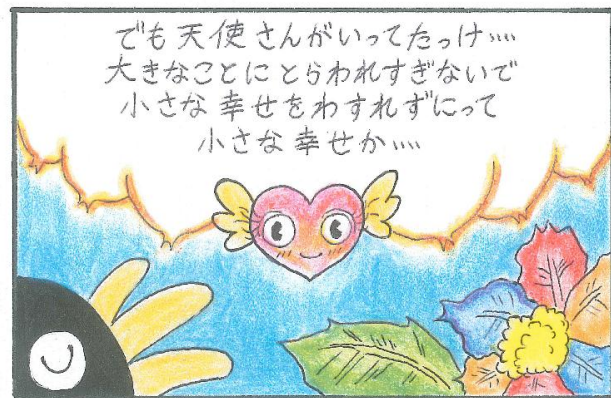 でも天使さんがいってたっけ……
大きなことにとらわれすぎないで
小さな幸せをわすれずにって
小さな幸せか……